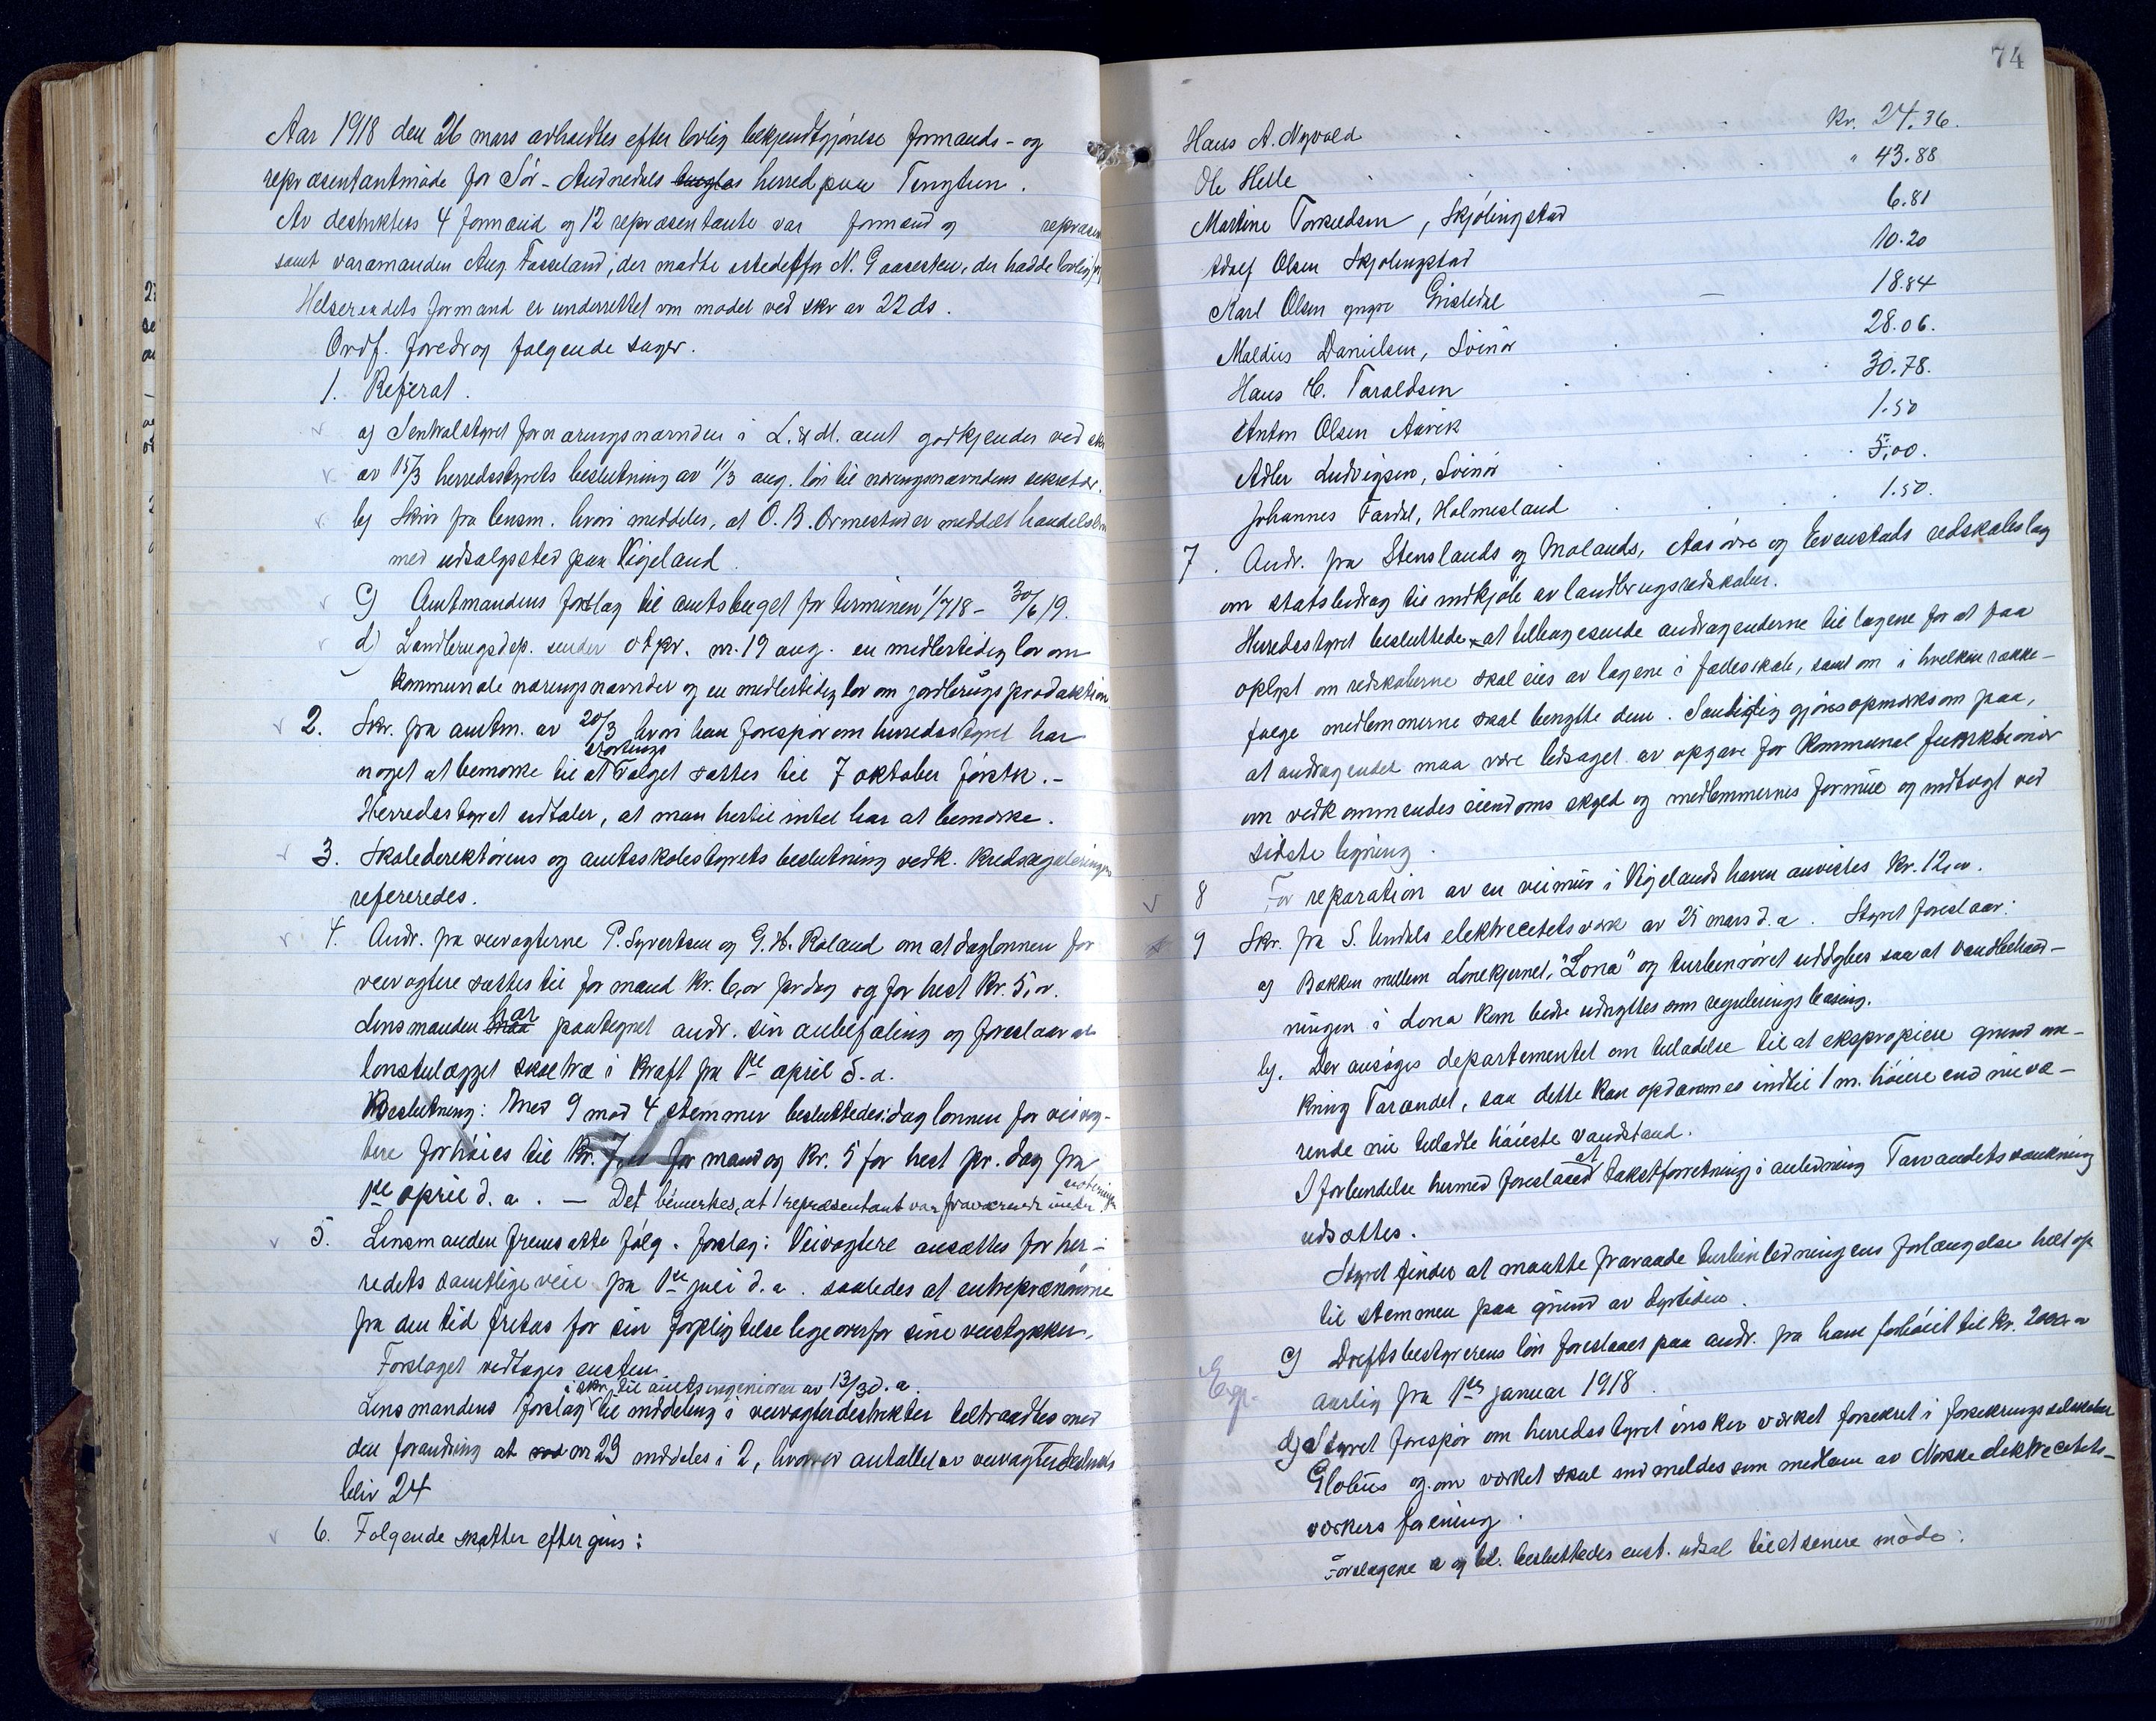 Aar 1918 den 26 mars avholdtes efter lovlig bekjendtgjørelse formands- og
repræsentantmøde for Sör-Audnedals herred paa Tengtun.
Av destriktets 4 formænd og 12 repræsentante var formænd og repræsen
samt varamanden Aug. Fasseland, der mødte istedetfor N. Gaasesten, der hadde lovlig
Helseraadets formand er underrettet om mødet ved skr av 22 ds.
Ordf. foredrog følgende sager.
1. Referat.
a) Sentralstyret for næringsnævnden i L. & M. amt godkjender ved skr
av 15/3 herredsstyrets beslutning av 11/3 ang. løn til næringsnævndens sekretær.
b) Skriv fra lensm. hvori meddeles, at O. B. Ormestad er meddelt handels
med udsalgssted paa Vigeland.
c) Amtmandens forslag til amtsbuget for terminen 1/7 18 - 30/6 19.
d) Landbrugsdep. sender otprp. nr. 19 ang. en midlertidig lov om
kommunale næringsnævnder og en midlertidig lov om jordbrugsproduktion
2. Skr. fra amtm. av 20/3 hvori han forespör om herredsstyret har
noget at bemærke til at stortings valget sættes til 7 oktober førstk. -
Herredsstyret udtaler, at man hertil intet har at bemærke.
3. Skoledirektørens og amtsskolestyrets beslutning vedk. kredsreguleringen
refereredes.
4. Andr. fra veivogterne P. Syvertsen og G. H. Roland om at daglønnen for
veivogtere sættes til for mand kr. 6,00 pr dag og for hest kr. 5,00.
Lensmanden har paategnet andr. sin anbefaling og foreslaar at
lønstillægget skal træ i kraft fra 1ste april d.a.
Beslutning: Med 9 mod 4 stemmer besluttedes: daglønnen for veivog-
tere forhöies til kr. 7,00 for mand og kr. 5 for hest pr. dag fra
1ste april d.a. — Det bemerkes, at 1 repræsentant var fraværende under voteringen
5. Lensmanden fremsatte følg. forslag: Veivogtere ansættes for her-
redets samtlige veie fra 1ste juli d.a. saaledes at entreprenørerne
fra den tid fritas for sin forpligtelse ligeoverfor sine veistykker.
Forslaget vedtages enstem.
Lensmandens forslag i skr. til amtsingeniören av 13/3 d.a. til inddeling i veivogterdestrikter tiltraadtes med
den forandring at nr 23 inddeles i 2, hvorved antallet av veivogterdestrikts
bliv 24
6. Følgende skatter eftergives:
74
Hans A. Nyvold kr. 24.36.
Ole Helle " 43.88
Martine Torkildsen, Skjölingstad 6.81
Adolf Olsen Skjölingstad 10.20
Karl Olsen yngre Gisledal 18.84
Maldius Danielsen, Svinör 28.06.
Hans C. Taraldsen 30.78.
Anton Olsen Aavik 1.50
Adler Ludvigsen, Svinör 5,00.
Johannes Fardal, Holmesland 1.50.
7. Andr. fra Stenslands og Molands, Aasöre og Evenstads redskabslag
om statsbidrag til indkjöb av landbrugsredskaber.
Herredsstyret besluttede at tilbagesende andragenderne til lagene for at faa
oplyst om redskaberne skal eies av lagene i fællesskab, samt om i hvilken række-
følge medlemmerne skal benytte dem. Samtidig gjöres opmerksom paa,
at andragendet maa være ledsaget av opgave for kommunal funktionær
om vedkommendes eiendoms skyld og medlemmernes formue og indtægt ved
sidste ligning.
8 For reparation av en veimur i Vigelands haven anvistes kr. 12,00.
9 Skr. fra S. Undals elektrecetetsverk av 25 mars d.a. Styret foreslaar:
a) Bækken mellem Lonekjernet, "Lona" og turbinröret uddybes saa at vandbehold-
ningen i Lona kan bedre udnyttes som reguleringsbasseng.
b). Der ansöges departementet om tilladelse til at ekspropiere grund om-
kring Tarvandet, saa dette kan opdæmmes indtil 1 m. höiere end nuvæ-
rende nu tilladte höieste vandstand.
I forbindelse hermed foreslaaes at takstforretning i anledning Tarvandets sænkning
udsættes.
Styret finder at maatte fraraade turbinledningens forlængelse helt op
til stemmen paa grund av dyrtiden.
c) Driftsbestyrerens løn foreslaaes paa andr. fra ham forhöiet til kr. 2000,00
Exp. aarlig fra 1ste januar 1918.
d) Styret forespör om herredsstyret önsker verket forsikret i forsikringsselskabet
Globus og om verket skal indmeldes som medlem av Norske elektrecetets-
verkers forening.
Forslagene a og bd. besluttedes enst. udsat til et senere møde.